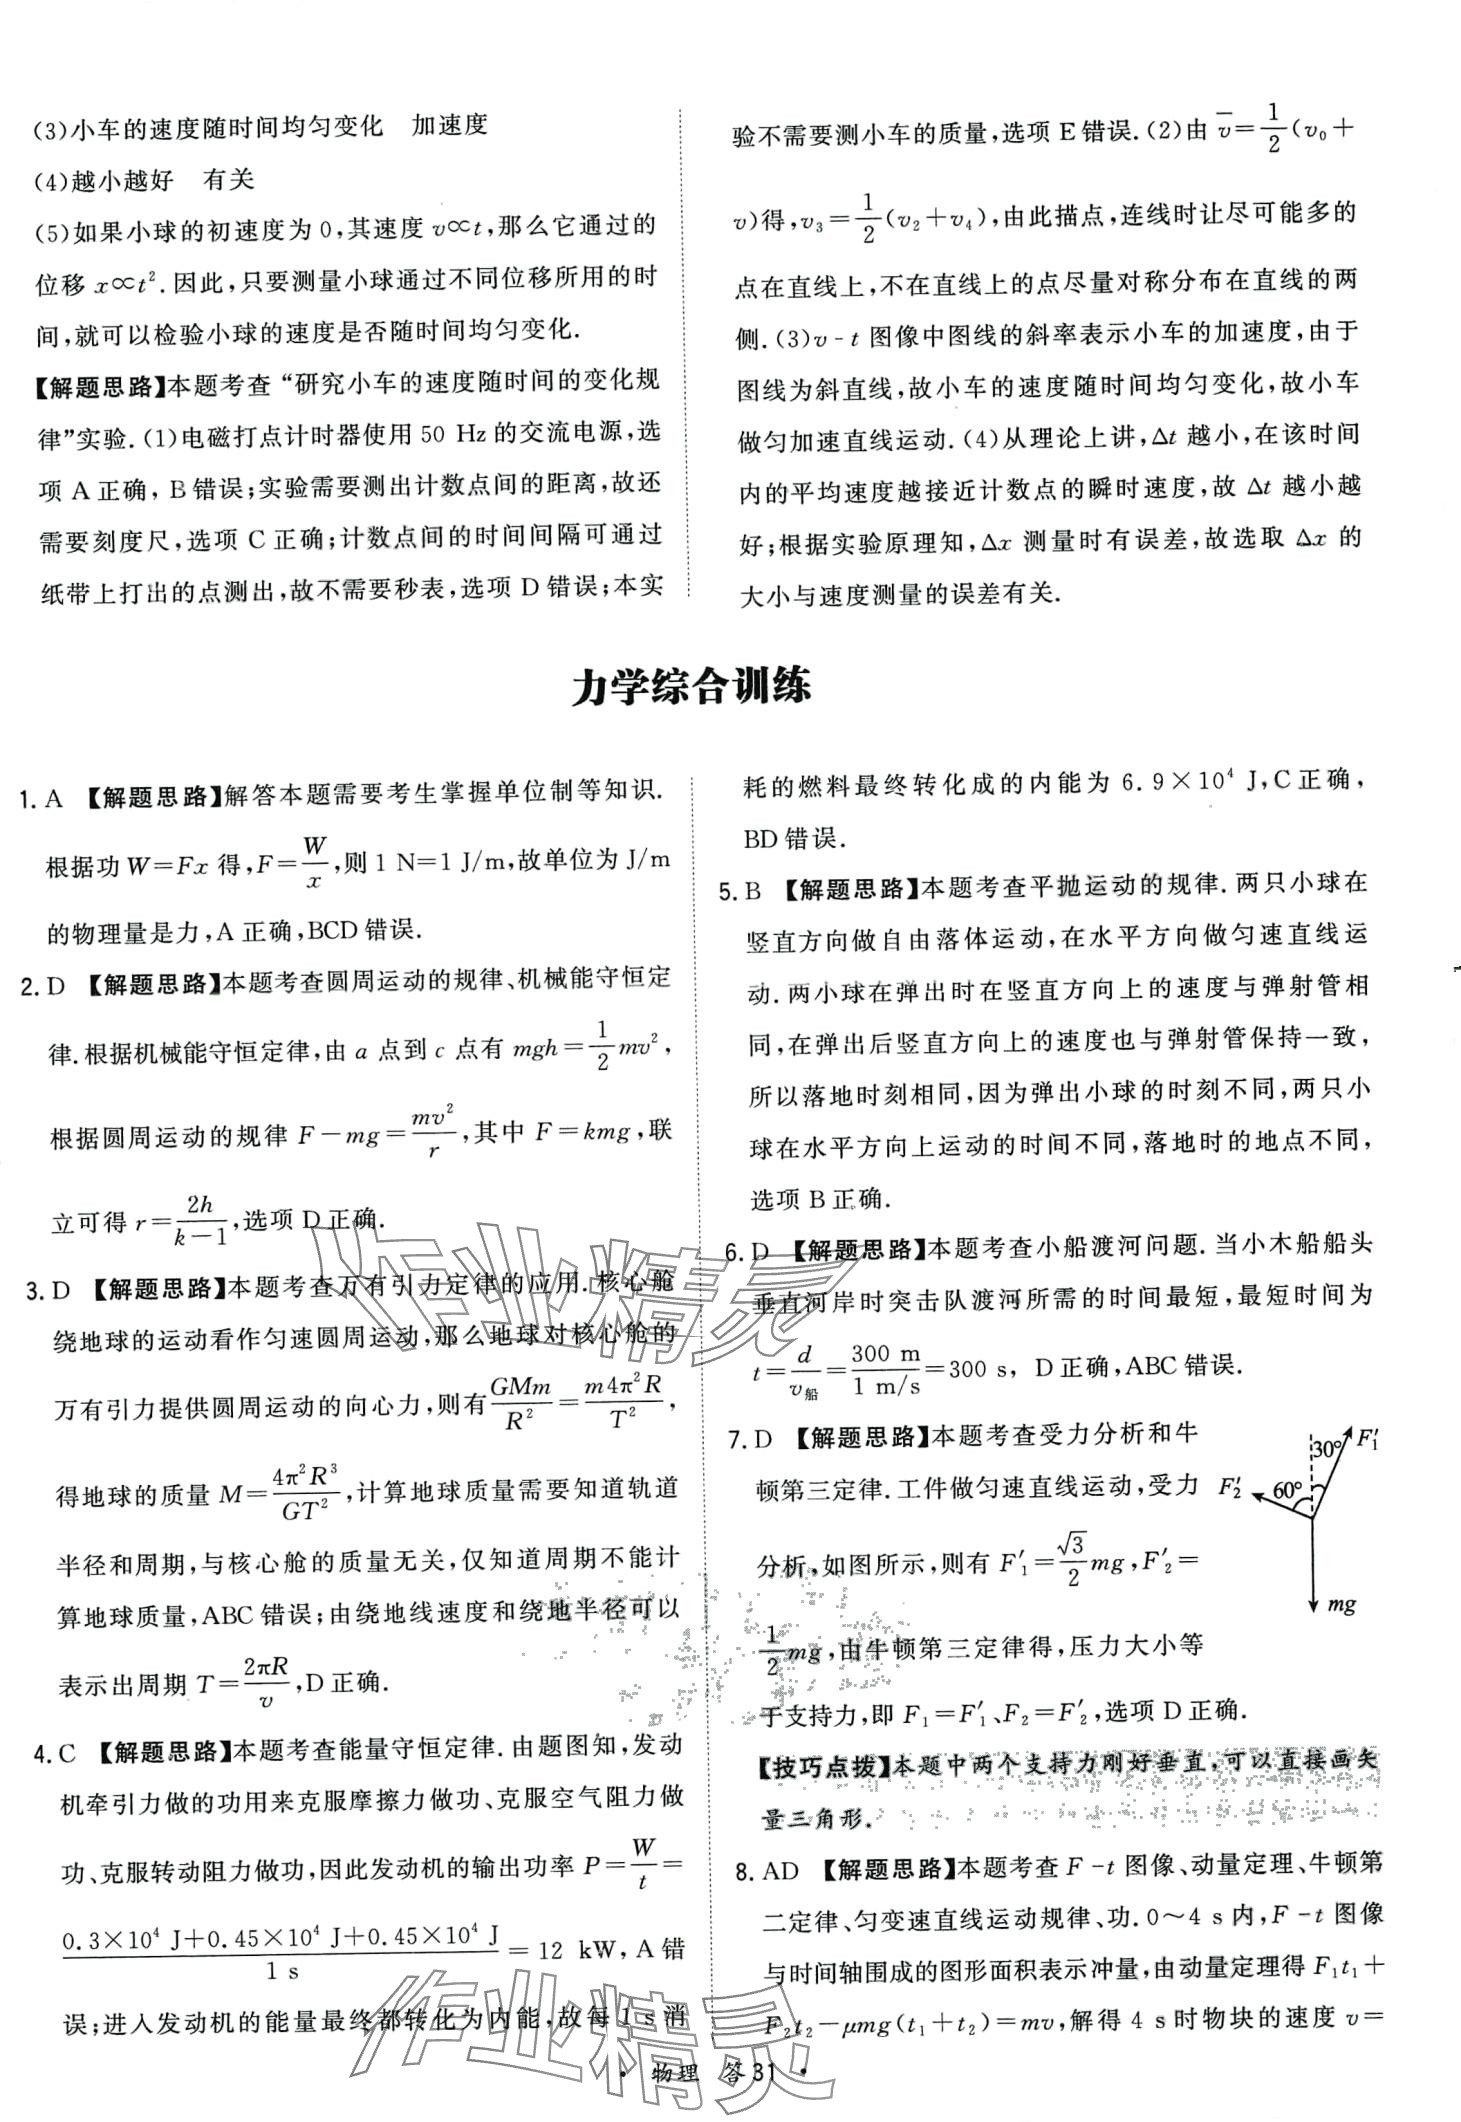 (3)小车的速度随时间均匀变化　加速度
(4)越小越好　有关
(5)如果小球的初速度为 0,其速度 v∝t,那么它通过的
位移 x∝t².因此,只要测量小球通过不同位移所用的时
间,就可以检验小球的速度是否随时间均匀变化.
【解题思路】本题考查“研究小车的速度随时间的变化规
律”实验.(1)电磁打点计时器使用 50 Hz 的交流电源,选
项 A 正确, B 错误;实验需要测出计数点间的距离,故还
需要刻度尺,选项 C 正确;计数点间的时间间隔可通过
纸带上打出的点测出,故不需要秒表,选项 D 错误;本实
验不需要测小车的质量,选项 E 错误.(2)由 v̄=1/2(v₀+
v)得,v₃=1/2(v₂+v₄),由此描点,连线时让尽可能多的
点在直线上,不在直线上的点尽量对称分布在直线的两
侧.(3)v-t 图像中图线的斜率表示小车的加速度,由于
图线为斜直线,故小车的速度随时间均匀变化,故小车
做匀加速直线运动.(4)从理论上讲,Δt 越小,在该时间
内的平均速度越接近计数点的瞬时速度,故 Δt 越小越
好;根据实验原理知,Δx 测量时有误差,故选取 Δx 的
大小与速度测量的误差有关.
力学综合训练
1. A 【解题思路】解答本题需要考生掌握单位制等知识.
根据功 W=Fx 得,F=W/x,则 1 N=1 J/m,故单位为 J/m
的物理量是力,A 正确,BCD 错误.
2. D 【解题思路】本题考查圆周运动的规律、机械能守恒定
律.根据机械能守恒定律,由 a 点到 c 点有 mgh=1/2mv²,
根据圆周运动的规律 F-mg=mv²/r,其中 F=kmg,联
立可得 r=2h/(k-1),选项 D 正确.
3. D 【解题思路】本题考查万有引力定律的应用.核心舱
绕地球的运动看作匀速圆周运动,那么地球对核心舱的
万有引力提供圆周运动的向心力,则有GMm/R²=m4π²R/T²,
得地球的质量 M=4π²R³/GT²,计算地球质量需要知道轨道
半径和周期,与核心舱的质量无关,仅知道周期不能计
算地球质量,ABC 错误;由绕地线速度和绕地半径可以
表示出周期 T=2πR/v,D 正确.
4. C 【解题思路】本题考查能量守恒定律.由题图知,发动
机牵引力做的功用来克服摩擦力做功、克服空气阻力做
功、克服转动阻力做功,因此发动机的输出功率 P=W/t=
(0.3×10⁴ J+0.45×10⁴ J+0.45×10⁴ J)/1 s=12 kW,A 错
误;进入发动机的能量最终都转化为内能,故每 1 s 消
耗的燃料最终转化成的内能为 6.9×10⁴ J,C 正确,
BD 错误.
5. B 【解题思路】本题考查平抛运动的规律.两只小球在
竖直方向做自由落体运动,在水平方向做匀速直线运
动.两小球在弹出时在竖直方向上的速度与弹射管相
同,在弹出后竖直方向上的速度也与弹射管保持一致,
所以落地时刻相同,因为弹出小球的时刻不同,两只小
球在水平方向上运动的时间不同,落地时的地点不同,
选项 B 正确.
6. D 【解题思路】本题考查小船渡河问题.当小木船船头
垂直河岸时突击队渡河所需的时间最短,最短时间为
t=d/v船=300 m/1 m/s=300 s, D 正确,ABC 错误.
7. D 【解题思路】本题考查受力分析和牛
顿第三定律.工件做匀速直线运动,受力
分析,如图所示,则有 F′₁=√3/2mg,F′₂=
1/2mg,由牛顿第三定律得,压力大小等
于支持力,即 F₁=F′₁、F₂=F′₂,选项 D 正确.
30° F′₁
F′₂ 60°
mg
【技巧点拨】本题中两个支持力刚好垂直,可以直接画矢
量三角形.
8. AD 【解题思路】本题考查 F-t 图像、动量定理、牛顿第
二定律、匀变速直线运动规律、功.0～4 s 内,F-t 图像
与时间轴围成的图形面积表示冲量,由动量定理得 F₁t₁+
F₂t₂-μmg(t₁+t₂)=mv,解得 4 s 时物块的速度 v=
· 物理　答 31 ·
作业精灵
作业精灵